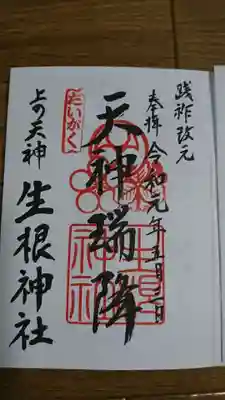 践祚改元
奉拝 令和元年五月二日
天神瑞降
だいがく
上の天神
生根神社